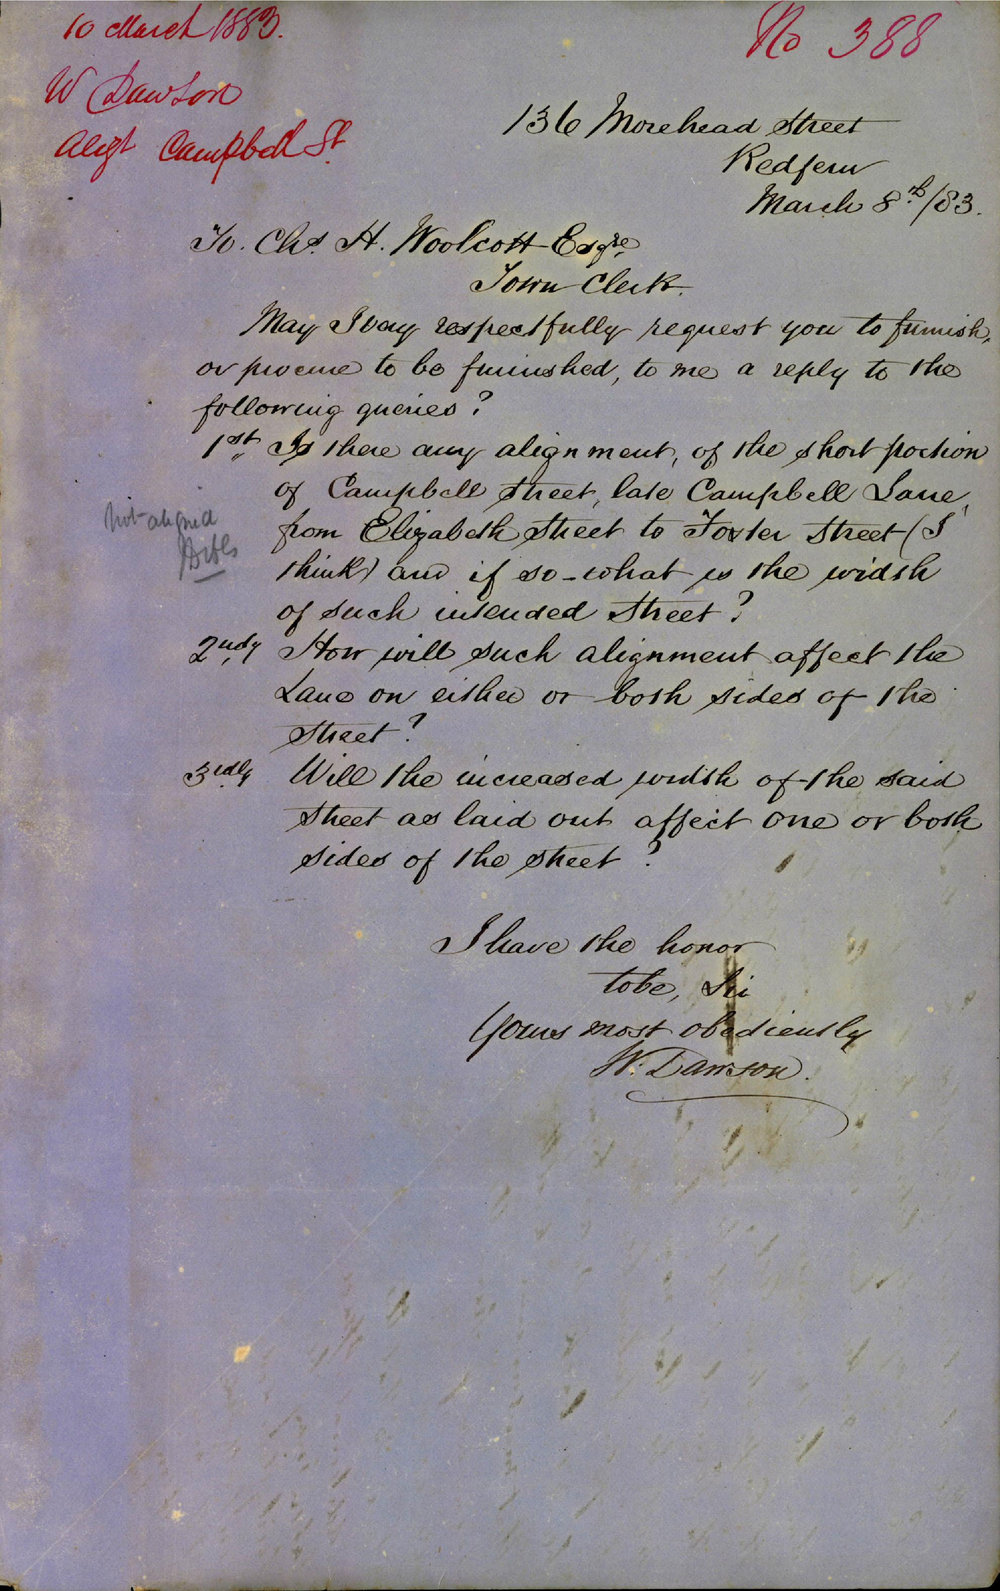 10 March 1883.
No 388
W Dawson
Aligt Campbell St.
136 Morehead Street
Redfern
March 8th/83.
To. Chs. H. Woolcott Esqre
Town Clerk.
May I very respectfully request you to furnish,
or procure to be furnished, to me a reply to the
following queries?
1st. Is there any alignment, of the short portion
of Campbell Street, late Campbell Lane,
from Elizabeth Street to Foster Street (I
think) and if so - what is the width
of such intended Street?
not aligned
2ndly How will such alignment affect the
Lane on either or both sides of the
Street?
3rdly Will the increased width of the said
Street as laid out affect one or both
sides of the street?
I have the honor
to be, Sir
Yours most obediently
W. Dawson.